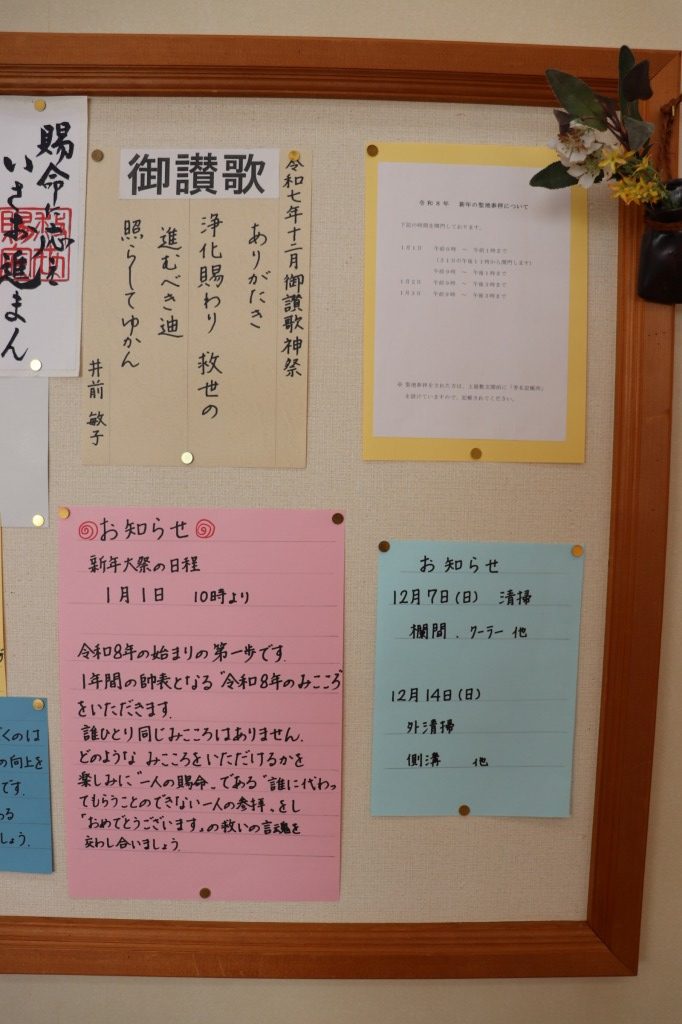 賜命に
いさゝ進まん
御讃歌
令和七年十二月御讃歌神祭
ありがたき
浄化賜わり 救世の
進むべき迪
照らしてゆかん
井前 敏子
令和8年 新年の聖地参拝について
下記の時間を開門しております。
1月1日 午前0時 ～ 午前1時まで
(31日の午後11時から開門します)
午前9時 ～ 午後1時まで
1月2日 午前9時 ～ 午後3時まで
1月3日 午前9時 ～ 午後3時まで
お知らせ
新年大祭の日程
1月1日 10時より
令和8年の始まりの第一歩です.
1年間の師表となる"令和8年のみこころ"
をいただきます.
誰ひとり同じみこころはありません.
どのような みこころをいただけるかを
楽しみに"一人の賜命"である"誰に代わっ
てもらうことのできない一人の参拝"をし
『おめでとうございます』の救いの言魂を
交わし合いましょう.
お知らせ
12月7日(日) 清掃
欄間. クーラー 他
12月14日(日)
外清掃
側溝 他
くのは
の向上を
です.
める
しょう.